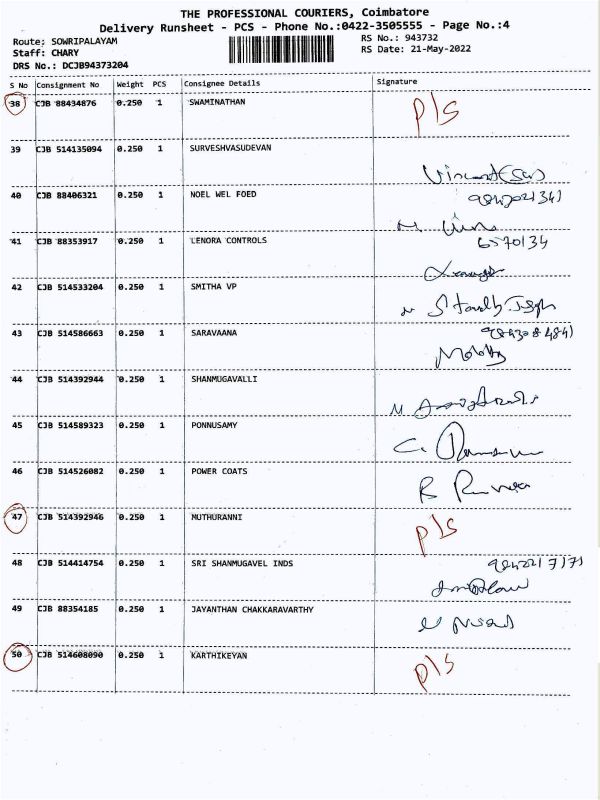 THE PROFESSIONAL COURIERS, Coimbatore
Delivery Runsheet - PCS - Phone No.:0422-3505555 - Page No.:4
Route; SOWRIPALAYAM
Staff: CHARY
DRS No.: DCJB94373204
RS No.: 943732
RS Date: 21-May-2022
S No Consignment No Weight PCS Consignee Details Signature
38 CJB 88434876 0.250 1 SWAMINATHAN P/S
39 CJB 514135094 0.250 1 SURVESHVASUDEVAN
40 CJB 88406321 0.250 1 NOEL WEL FOED
41 CJB 88353917 0.250 1 LENORA CONTROLS
42 CJB 514533204 0.250 1 SMITHA VP
43 CJB 514586663 0.250 1 SARAVAANA
44 CJB 514392944 0.250 1 SHANMUGAVALLI
45 CJB 514589323 0.250 1 PONNUSAMY
46 CJB 514526082 0.250 1 POWER COATS
47 CJB 514392946 0.250 1 MUTHURANNI P/S
48 CJB 514414754 0.250 1 SRI SHANMUGAVEL INDS
49 CJB 88354185 0.250 1 JAYANTHAN CHAKKARAVARTHY
50 CJB 514608090 0.250 1 KARTHIKEYAN P/S